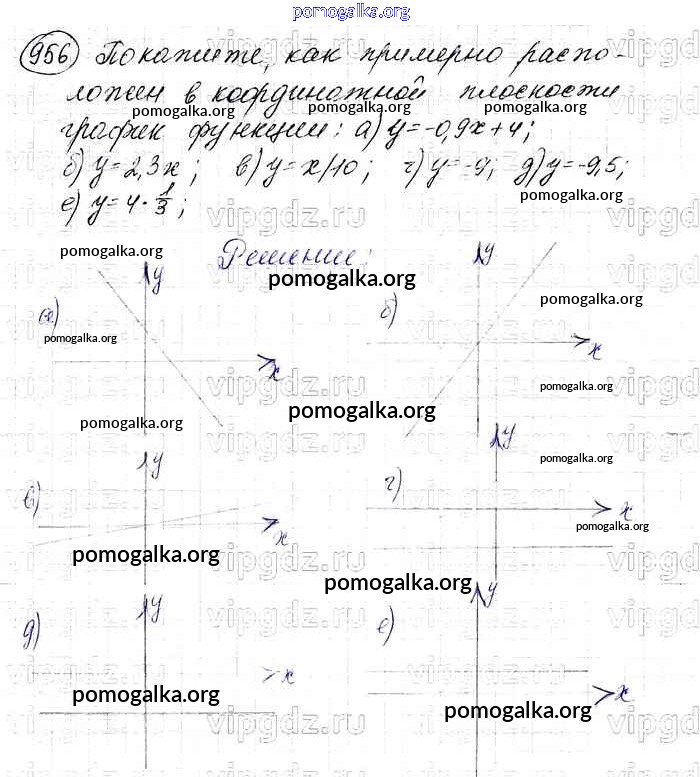 pomogalka.org
956 Покажите, как примерно распо-
ложен в координатной плоскости
pomogalka.org pomogalka.org pomogalka.org
график функции: а) y=-0,9x+4;
б) y=2,3x; в) y=x/10; г) y=-9; д) y=-9,5;
pomogalka.org
е) y=4·1/3;
pomogalka.org
Решение:
pomogalka.org
а) y x
pomogalka.org
б) y x
pomogalka.org
pomogalka.org
pomogalka.org
pomogalka.org
pomogalka.org
vipgdz.ru
в) y x
pomogalka.org
г) y x
pomogalka.org
pomogalka.org
pomogalka.org
д) y x
pomogalka.org
е) y x
pomogalka.org
vipgdz.ru